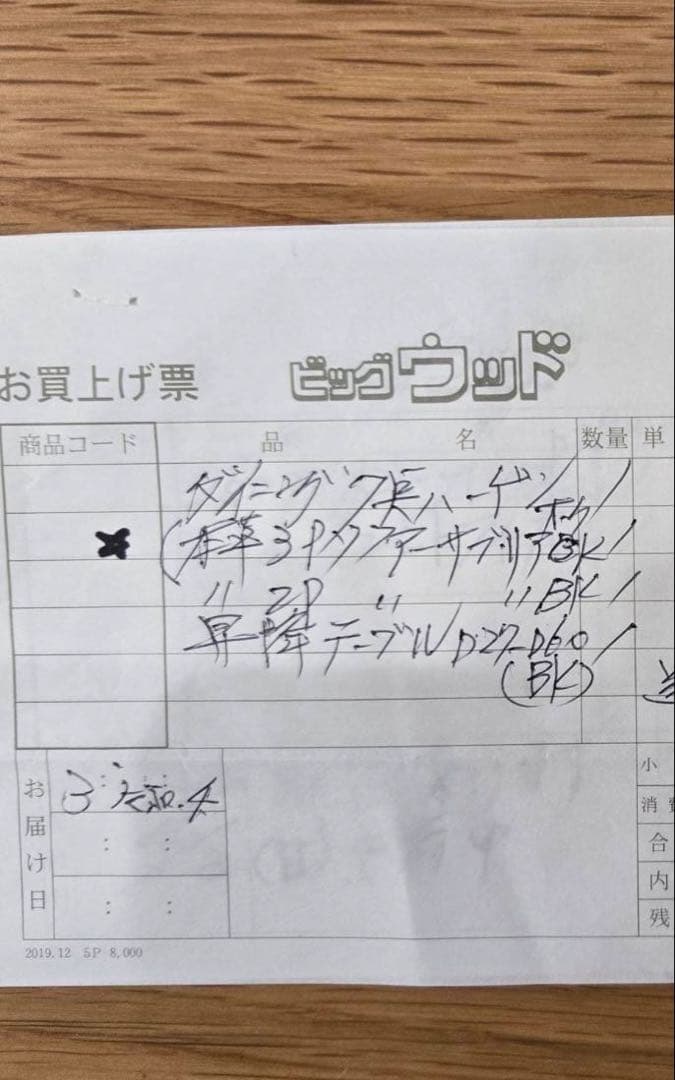 お買上げ票 ビッグウッド
商品コード 品名 数量 単
ダイニング7点ハーゲン 1
(本革3Pソファーサブリア BK 1
〃 2P 〃 〃 BK 1
昇降テーブル D27-D60 1
(BK)
小
お届け日
消費
合
内
残
: :
: :
2019.12 5P 8,000